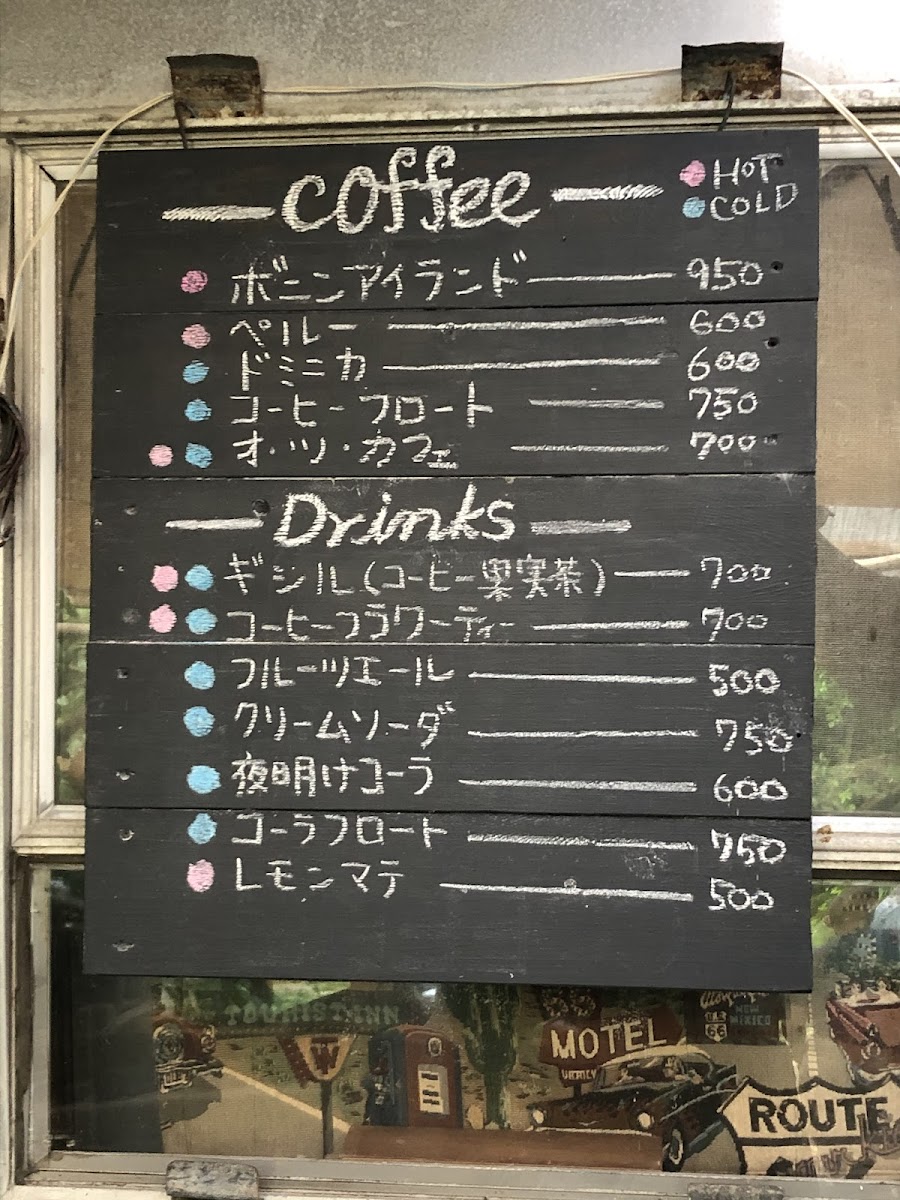 coffee
HOT
COLD
ボニンアイランド 950
ペルー 600
ドミニカ 600
コーヒーフロート 750
オ・ツ・カフェ 700
Drinks
ギシル(コーヒー果実茶) 700
コーヒーフラワーティー 700
フルーツエール 500
クリームソーダ 750
夜明けコーラ 600
コーラフロート 750
レモンマテ 500
TOURIST INN
MOTEL
NEW
MEXICO
66
ROUTE